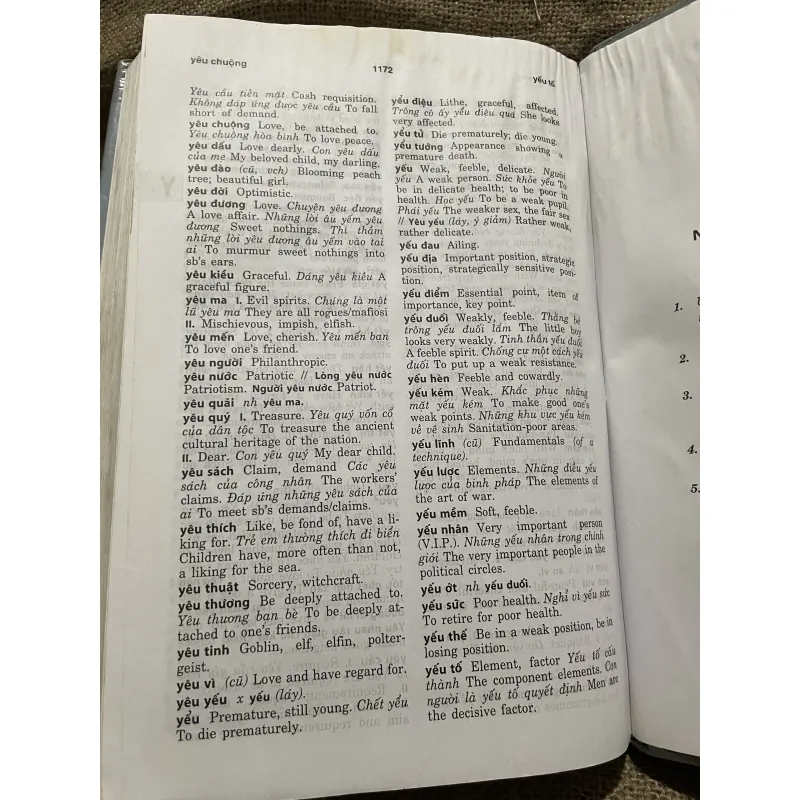 yêu chuộng
1172
yếu tố
Yêu cầu tiền mặt Cash requisition.
Không đáp ứng được yêu cầu To fall
short of demand.
yêu chuộng Love, be attached to.
Yêu chuộng hòa bình To love peace.
yêu dấu Love dearly. Con yêu dấu
của mẹ My beloved child, my darling.
yêu đào (cũ, vch) Blooming peach
tree; beautiful girl.
yêu đời Optimistic.
yêu đương Love. Chuyện yêu đương
A love affair. Những lời âu yếm yêu
đương Sweet nothings. Thì thầm
những lời yêu đương âu yếm vào tai
ai To murmur sweet nothings into
sb's ears.
yêu kiều Graceful. Dáng yêu kiều A
graceful figure.
yêu ma I. Evil spirits. Chúng là một
lũ yêu ma They are all rogues/mafiosi
II. Mischievous, impish, elfish.
yêu mến Love, cherish. Yêu mến bạn
To love one's friend.
yêu người Philanthropic.
yêu nước Patriotic // Lòng yêu nước
Patriotism. Người yêu nước Patriot.
yêu quái nh yêu ma.
yêu quý I. Treasure. Yêu quý vốn cổ
của dân tộc To treasure the ancient
cultural heritage of the nation.
II. Dear. Con yêu quý My dear child.
yêu sách Claim, demand Các yêu
sách của công nhân The workers'
claims. Đáp ứng những yêu sách của
ai To meet sb's demands/claims.
yêu thích Like, be fond of, have a li-
king for. Trẻ em thường thích đi biển
Children have, more often than not,
a liking for the sea.
yêu thuật Sorcery, witchcraft.
yêu thương Be deeply attached to.
Yêu thương bạn bè To be deeply at-
tached to one's friends.
yêu tinh Goblin, elf, elfin, polter-
geist.
yêu vì (cũ) Love and have regard for.
yêu yếu x yếu (láy).
yểu Premature, still young. Chết yểu
To die prematurely.
yểu điệu Lithe, graceful, affected.
Trông cô ấy yểu điệu quá She looks
very affected.
yểu tử Die prematurely; die young.
yểu tướng Appearance showing a
premature death.
yếu Weak, feeble, delicate. Người
yếu A weak person. Sức khỏe yếu To
be in delicate health; to be poor in
health. Học yếu To be a weak pupil.
Phái yếu The weaker sex, the fair sex
// Yêu yếu (láy, ý giảm) Rather weak,
rather delicate.
yếu đau Ailing.
yếu địa Important position, strategic
position, strategically sensitive posi-
tion.
yếu điểm Essential point, item of
importance, key point.
yếu đuối Weakly, feeble. Thằng bé
trông yếu đuối lắm The little boy
looks very weakly. Tinh thần yếu đuối
A feeble spirit. Chống cự một cách yếu
đuối To put up a weak resistance.
yếu hèn Feeble and cowardly.
yếu kém Weak. Khắc phục những
mặt yếu kém To make good one's
weak points. Những khu vực yếu kém
về vệ sinh Sanitation-poor areas.
yếu lĩnh (cũ) Fundamentals (of a
technique).
yếu lược Elements. Những điều yếu
lược của binh pháp The elements of
the art of war.
yếu mềm Soft, feeble.
yếu nhân Very important person
(V.I.P.). Những yếu nhân trong chính
giới The very important people in the
political circles.
yếu ớt nh yếu đuối.
yếu sức Poor health. Nghỉ vì yếu sức
To retire for poor health.
yếu thế Be in a weak position, be in
losing position.
yếu tố Element, factor Yếu tố cấu
thành The component elements. Con
người là yếu tố quyết định Men are
the decisive factor.
N
1.
2.
3.
4.
5.